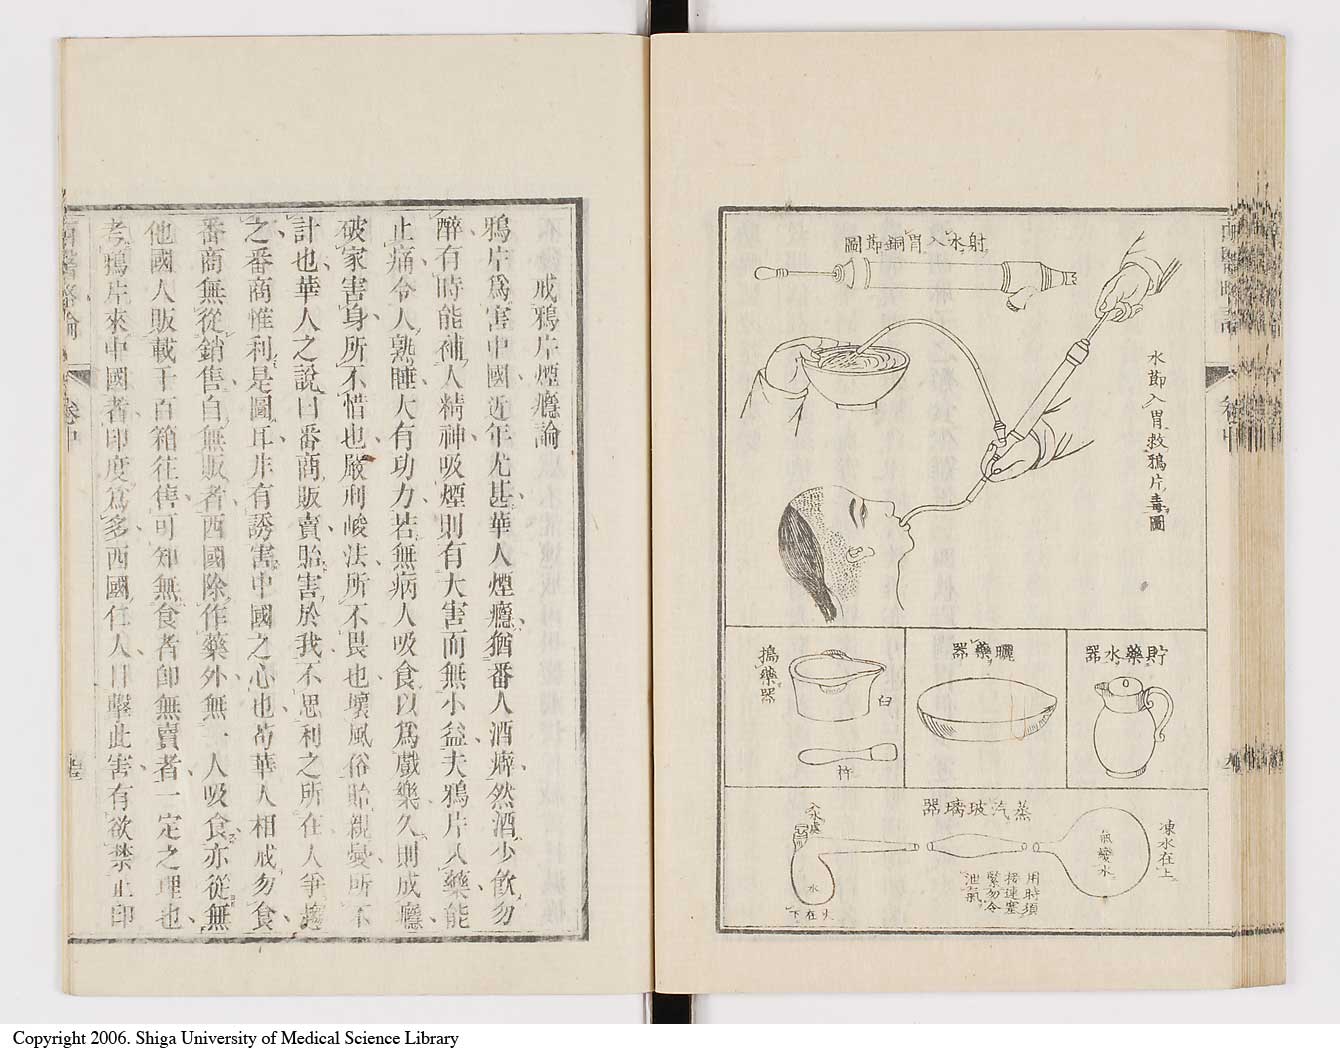 射水入胃銅節圖
水節入胃救鴉片毒圖
貯藥水器
曬藥器
搗藥器
臼
杵
蒸汽玻璃器
凍水在上
氣變水
用時須
接連塞
緊勿令
泄氣
入水處
水
火在下
戒鴉片煙癮論
鴉片爲害中國近年尤甚華人煙癮猶番人酒癖然酒少飲勿
醉有時能補人精神吸煙則有大害而無小益夫鴉片入藥能
止痛令人熟睡大有功力若無病人吸食以爲戲樂久則成癮
破家害身所不惜也嚴刑峻法所不畏也壞風俗貽親憂所不
計也華人之說曰番商販賣貽害於我不思利之所在人爭趨
之番商惟利是圖耳非有誘害中國之心也苟華人相戒勿食
番商無從銷售自無販者西國除作藥外無一人吸食亦從無
他國人販載千百箱往售可知無食者卽無賣者一定之理也
考鴉片來中國者印度爲多西國仁人目擊此害有欲禁止印
西醫略論
卷中
Copyright 2006. Shiga University of Medical Science Library